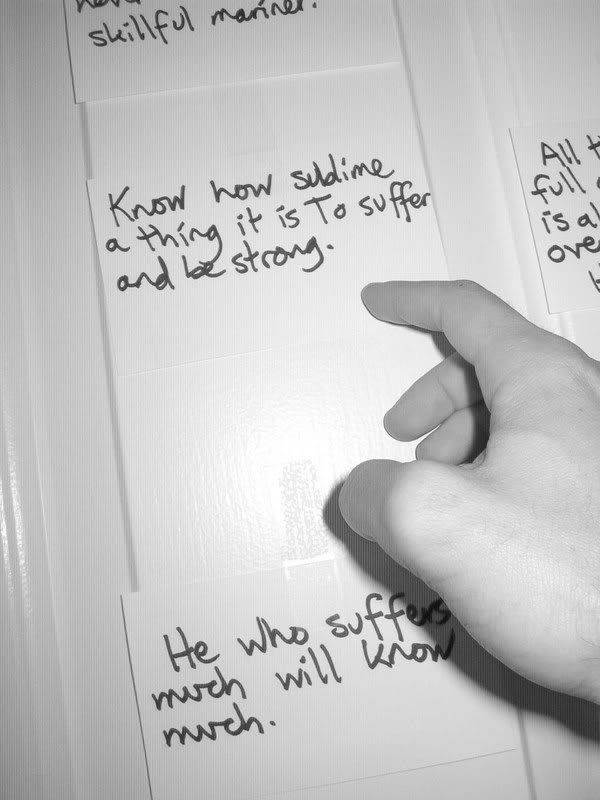 skillful mariner.
Know how sublime
a thing it is To suffer
and be strong.
All
full
is
over
He who suffers
much will know
much.